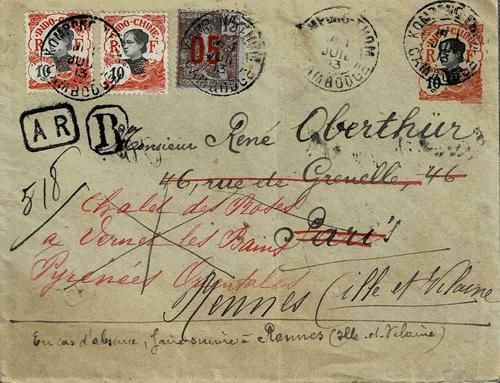 KOMPONG-THOM
JUIL
13
CAMBODGE
INDO-CHINE
R F
10
INDO-CHINE
R F
10
05
KOMPONG-THOM
JUIL
13
CAMBODGE
10
A R
R
518
Monsieur René Oberthür
46, rue de Grenelle, 46
Paris
Chalet des Roses
à Vernet les Bains
Pyrénées Orientales
Rennes (Ille et Vilaine
En cas d'absence, faire suivre à Rennes (Ille-et-Vilaine)